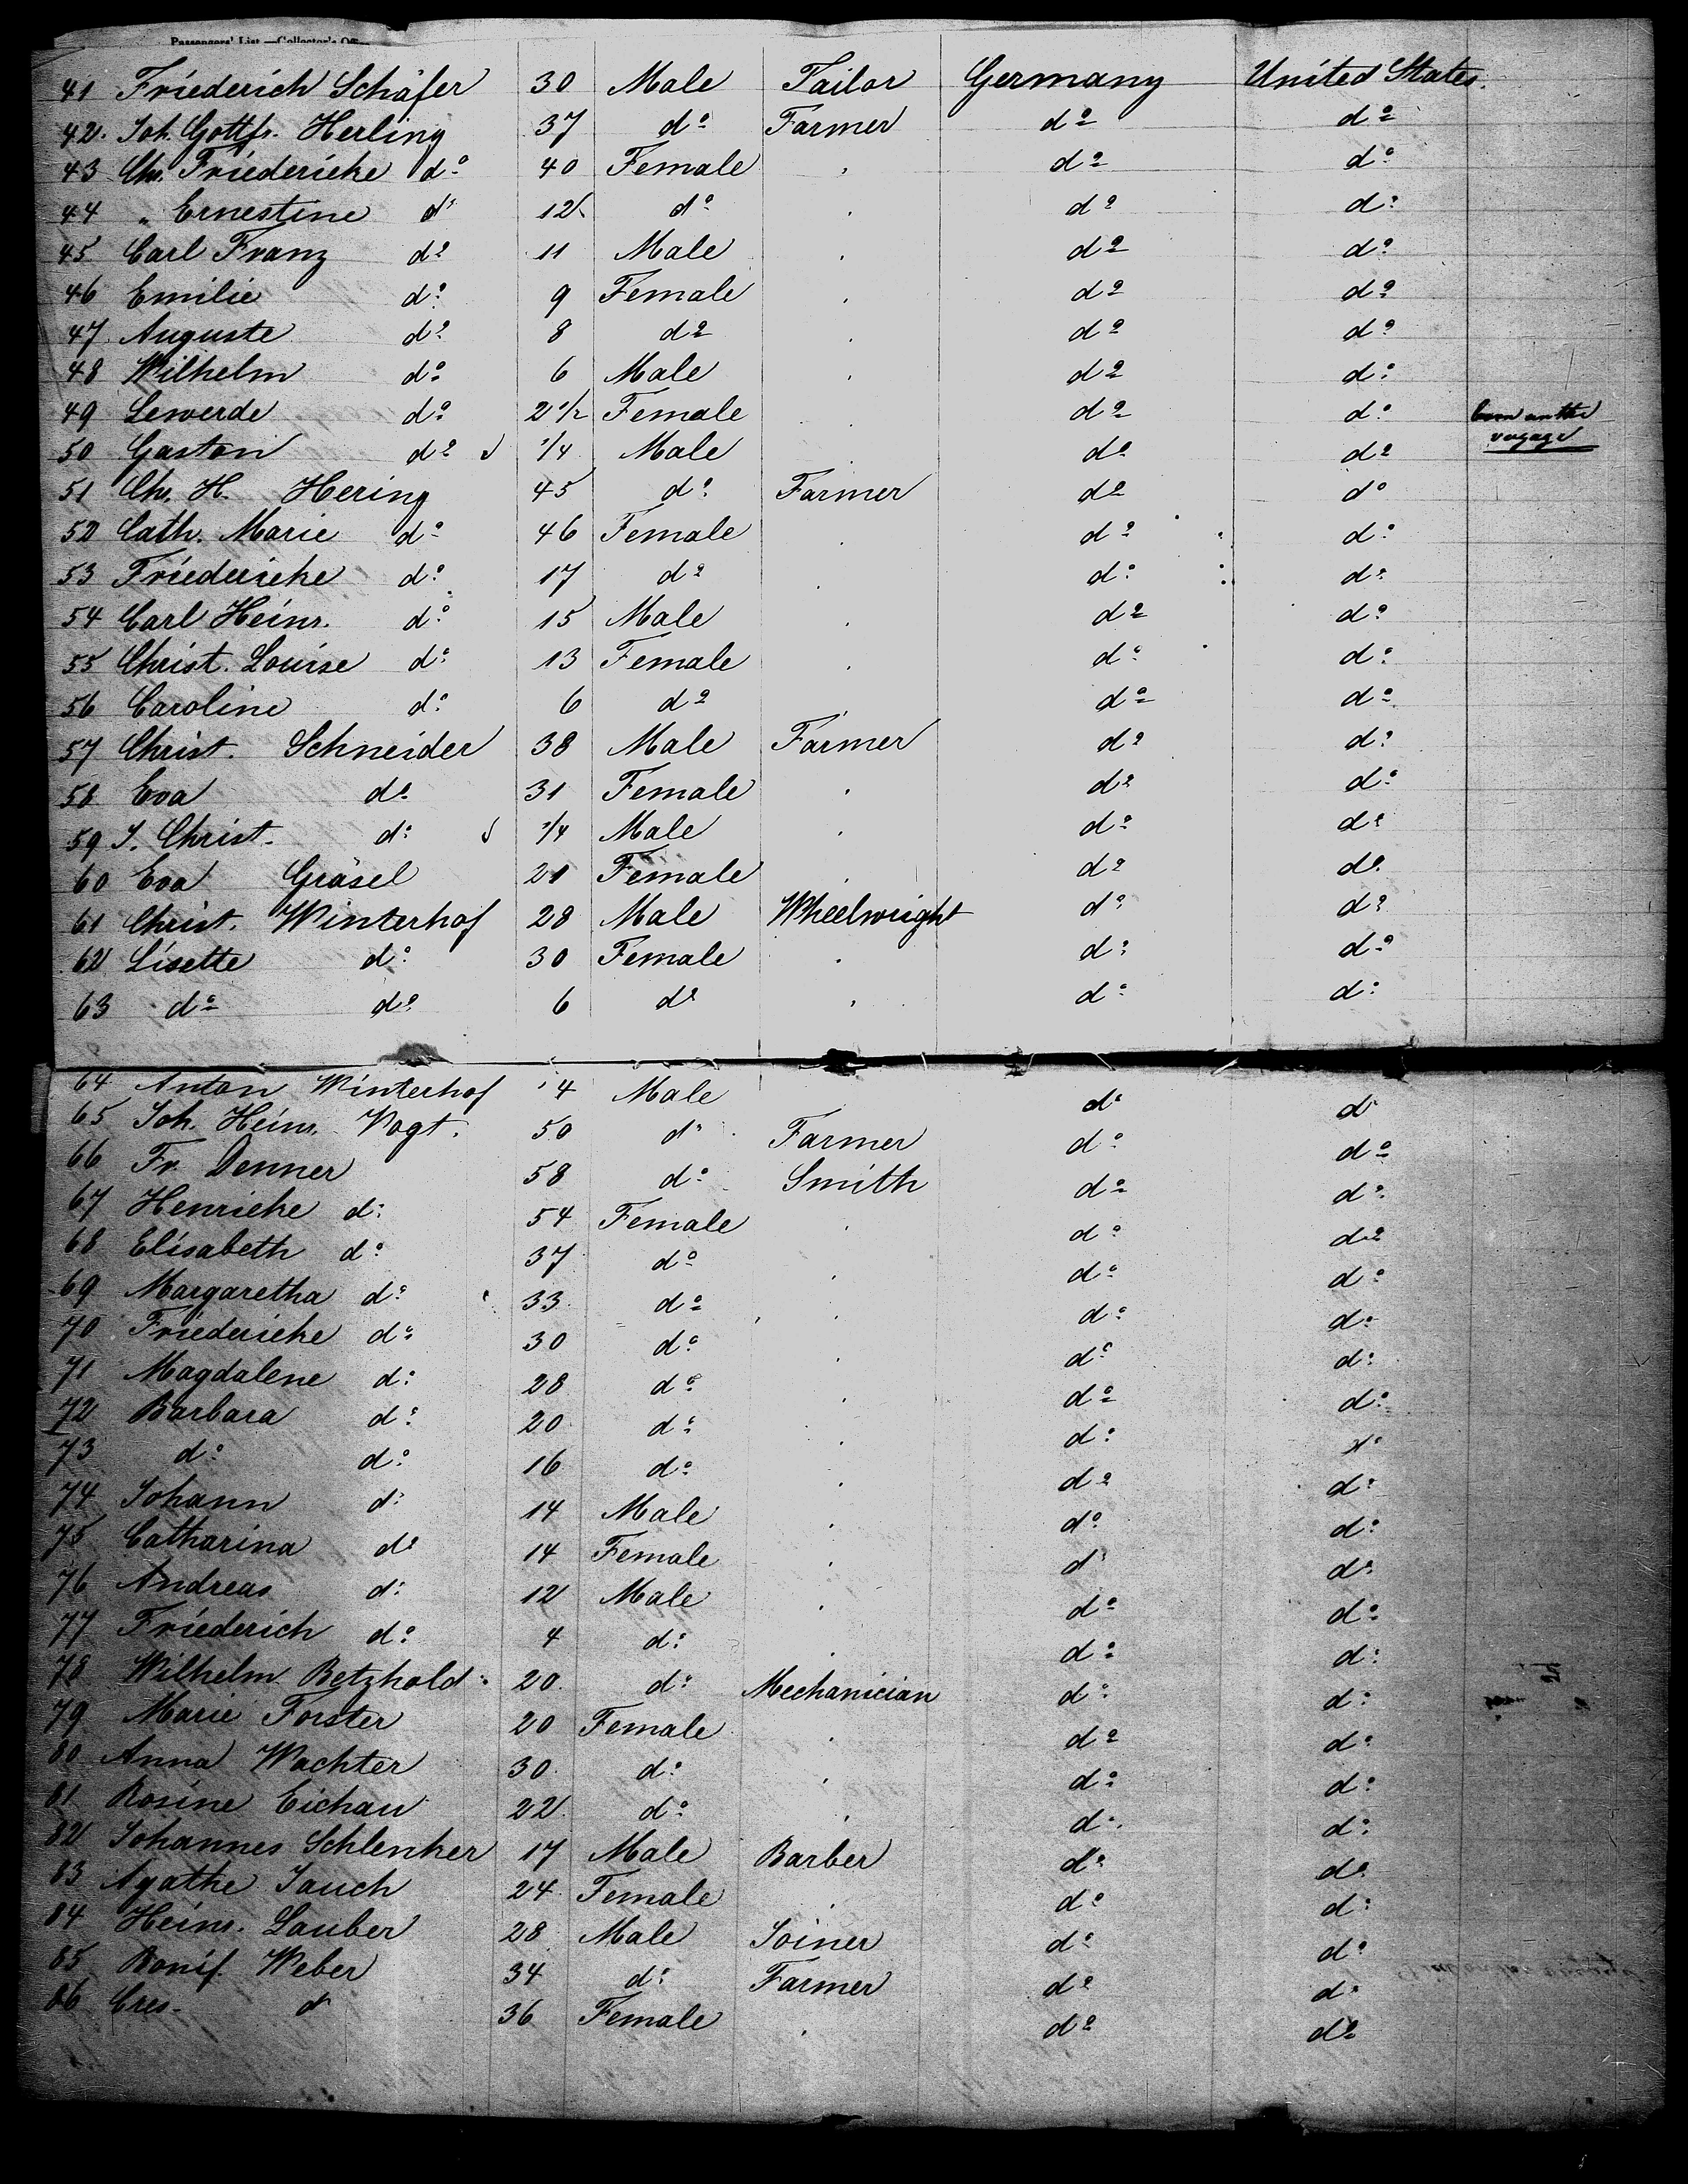 Passengers' List.—Collector's Office
41 Friederich Schäfer 30 Male Tailor Germany United States.
42. Joh. Gottfr. Herling 37 do Farmer do do
43 Chr. Friedericke do 40 Female do do
44 " Ernestine do 12 do do do
45 Carl Franz do 11 Male do do
46 Emilie do 9 Female do do
47 Auguste do 8 do do do
48 Wilhelm do 6 Male do do
49 Lewerde do 2 1/2 Female do do born on the
50 Gaston do 1/4 Male do do voyage
51 Ch. H. Hering 45 do Farmer do do
52 Cath. Marie do 46 Female do do
53 Friedericke do 17 do do do
54 Carl Heinr. do 15 Male do do
55 Christ. Louise do 13 Female do do
56 Caroline do 6 do do do
57 Christ. Schneider 38 Male Farmer do do
58 Eva do 31 Female do do
59 J. Christ. do 3/4 Male do do
60 Eva Gräsel 21 Female do do
61 Christ. Winterhof 28 Male Wheelwright do do
62 Lisette do 30 Female do do
63 do do 6 do do do
64 Anton Winterhof 4 Male do do
65 Joh. Heinr. Vogt. 50 do Farmer do do
66 Fr. Denner 58 do Smith do do
67 Henrieke do 54 Female do do
68 Elisabeth do 37 do do do
69 Margaretha do 33 do do do
70 Friedericke do 30 do do do
71 Magdalene do 28 do do do
72 Barbara do 20 do do do
73 do do 16 do do do
74 Johann do 14 Male do do
75 Catharina do 14 Female do do
76 Andreas do 12 Male do do
77 Friederich do 4 do do do
78 Wilhelm Betzhold 20 do Mechanician do do
79 Marie Forster 20 Female do do
80 Anna Wachter 30 do do do
81 Rosine Eichau 22 do do do
82 Johannes Schlenker 17 Male Barber do do
83 Agathe Jauch 24 Female do do
84 Heinr. Lauber 28 Male Joiner do do
85 Bonif. Weber 34 do Farmer do do
86 Cres. do 36 Female do do